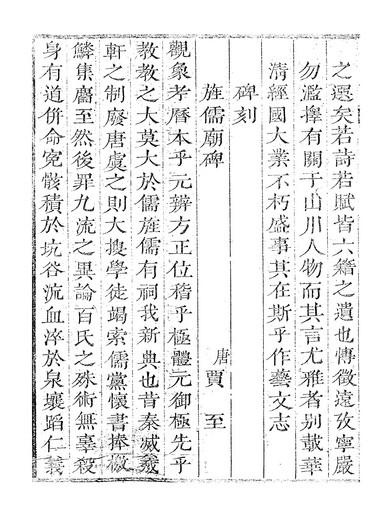 之選矣若詩若賦皆六籍之遺也博徵遠攷寧嚴
勿濫擇有關于山川人物而其言尤雅者別載華
清經國大業不朽盛事其在斯乎作藝文志
碑刻
旌儒廟碑 唐賈至
觀象考曆本乎元辨方正位稽乎極體元御極先乎
教教之大莫大於儒旌儒有祠我新典也昔秦滅羲
軒之制廢唐虞之則大搜學徒竭索儒黨懷書捧檄
鱗集麕至然後罪九流之異論百氏之殊術無辜殺
身有道併命冤骸積於坑谷流血淬於泉壤蹈仁義